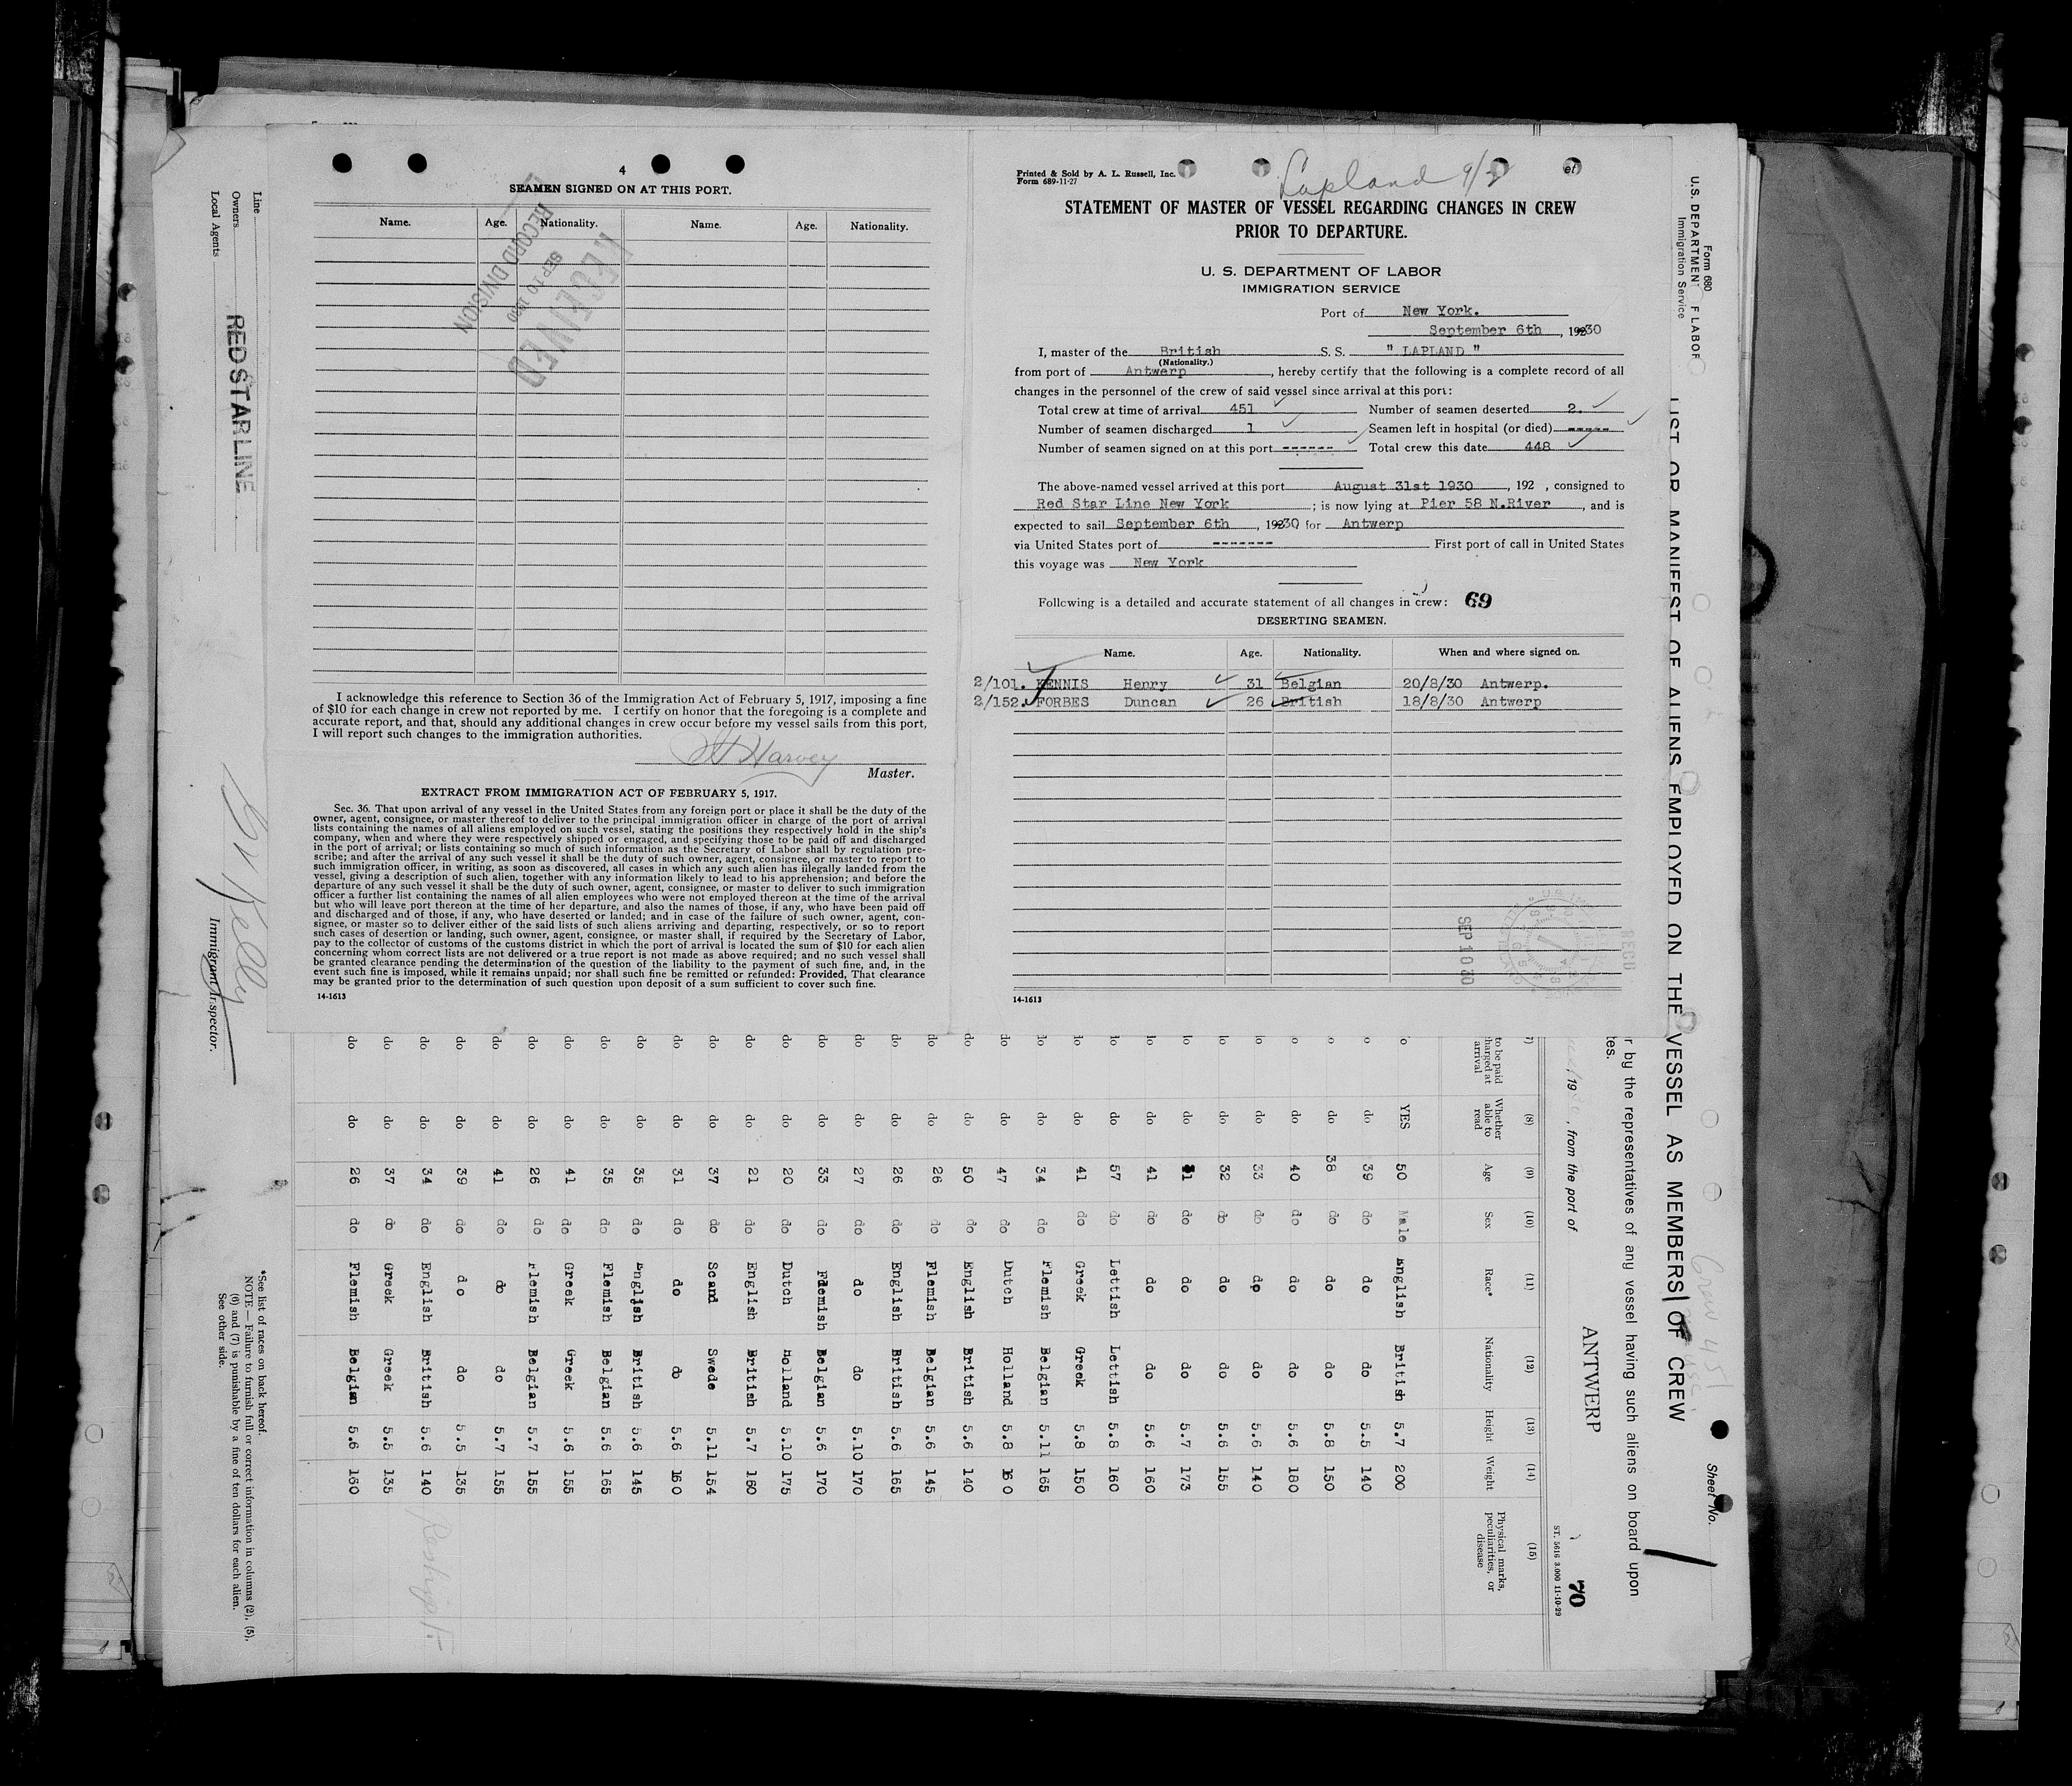 4
SEAMEN SIGNED ON AT THIS PORT.
Name. Age. Nationality. Name. Age. Nationality.
RECEIVED
SEP 10 1930
RECORD DIVISION
I acknowledge this reference to Section 36 of the Immigration Act of February 5, 1917, imposing a fine
of $10 for each change in crew not reported by me. I certify on honor that the foregoing is a complete and
accurate report, and that, should any additional changes in crew occur before my vessel sails from this port,
I will report such changes to the immigration authorities.
Harvey
Master.
EXTRACT FROM IMMIGRATION ACT OF FEBRUARY 5, 1917.
Sec. 36. That upon arrival of any vessel in the United States from any foreign port or place it shall be the duty of the
owner, agent, consignee, or master thereof to deliver to the principal immigration officer in charge of the port of arrival
lists containing the names of all aliens employed on such vessel, stating the positions they respectively hold in the ship's
company, when and where they were respectively shipped or engaged, and specifying those to be paid off and discharged
in the port of arrival; or lists containing so much of such information as the Secretary of Labor shall by regulation pre-
scribe; and after the arrival of any such vessel it shall be the duty of such owner, agent, consignee, or master to report to
such immigration officer, in writing, as soon as discovered, all cases in which any such alien has illegally landed from the
vessel, giving a description of such alien, together with any information likely to lead to his apprehension; and before the
departure of any such vessel it shall be the duty of such owner, agent, consignee, or master to deliver to such immigration
officer a further list containing the names of all alien employees who were not employed thereon at the time of the arrival
but who will leave port thereon at the time of her departure, and also the names of those, if any, who have been paid off
and discharged and of those, if any, who have deserted or landed; and in case of the failure of such owner, agent, con-
signee, or master so to deliver either of the said lists of such aliens arriving and departing, respectively, or so to report
such cases of desertion or landing, such owner, agent, consignee, or master shall, if required by the Secretary of Labor,
pay to the collector of customs of the customs district in which the port of arrival is located the sum of $10 for each alien
concerning whom correct lists are not delivered or a true report is not made as above required; and no such vessel shall
be granted clearance pending the determination of the question of the liability to the payment of such fine, and, in the
event such fine is imposed, while it remains unpaid; nor shall such fine be remitted or refunded: Provided, That clearance
may be granted prior to the determination of such question upon deposit of a sum sufficient to cover such fine.
14-1613
Printed & Sold by A. L. Russell, Inc.
Form 689-11-27
Lapland 9/
et
STATEMENT OF MASTER OF VESSEL REGARDING CHANGES IN CREW
PRIOR TO DEPARTURE.
U. S. DEPARTMENT OF LABOR
IMMIGRATION SERVICE
Port of New York.
September 6th, 1930
I, master of the British S. S. " LAPLAND "
(Nationality.)
from port of Antwerp, hereby certify that the following is a complete record of all
changes in the personnel of the crew of said vessel since arrival at this port:
Total crew at time of arrival 451 Number of seamen deserted 2.
Number of seamen discharged 1 Seamen left in hospital (or died) -----
Number of seamen signed on at this port ------ Total crew this date 448
The above-named vessel arrived at this port August 31st 1930, 192 , consigned to
Red Star Line New York; is now lying at Pier 58 N.River, and is
expected to sail September 6th, 1930 for Antwerp
via United States port of ------- First port of call in United States
this voyage was New York
Following is a detailed and accurate statement of all changes in crew: 69
DESERTING SEAMEN.
Name. Age. Nationality. When and where signed on.
2/101. KENNIS Henry 31 Belgian 20/8/30 Antwerp.
2/152. FORBES Duncan 26 British 18/8/30 Antwerp
SEP 10 30
RECD
14-1613
Form 680
U.S. DEPARTMENT F LABOR
Immigration Service
LIST OR MANIFEST OF ALIENS EMPLOYED ON THE VESSEL AS MEMBERS OF CREW
Crew 451
Sheet No.
r by the representatives of any vessel having such aliens on board upon
tes.
ANTWERP
19 , from the port of
70
ST. 5616 3.000 11-10-29
7) (8) (9) (10) (11) (12) (13) (14) (15)
to be paid
harged at
arrival
Whether
able to
read
Age
Sex
Race*
Nationality
Height
Weight
Physical marks,
peculiarities, or
disease
o YES 50 Male English British 5.7 200
o do 39 do do do 5.5 140
o do 38 do do do 5.8 150
o do 40 do do do 5.6 180
lo do 33 do do do 5.6 140
lo do 32 do do do 5.6 155
lo do 31 do do do 5.7 173
lo do 41 do do do 5.6 160
lo do 57 do Lettish Lettish 5.8 160
lo do 41 do Greek Greek 5.8 150
lo do 34 do Flemish Belgian 5.11 165
do do 47 do Dutch Holland 5.8 160
do do 50 do English British 5.6 140
do do 26 do Flemish Belgian 5.6 145
do do 26 do English British 5.6 165
do do 27 do do do 5.10 170
do do 33 do Flemish Belgian 5.6 170
do do 20 do Dutch Holland 5.10 175
do do 21 do English British 5.7 160
do do 37 do Scand Swede 5.11 154
do do 31 do do do 5.6 160
do do 35 do English British 5.6 145
do do 35 do Flemish Belgian 5.6 165
do do 41 do Greek Greek 5.6 155
do do 26 do Flemish Belgian 5.7 155
do do 41 do do do 5.7 155
do do 39 do do do 5.5 135
do do 34 do English British 5.6 140
do do 37 do Greek Greek 5.5 135
do do 26 do Flemish Belgian 5.6 160
Line
Owners
Local Agents
RED STAR LINE
Kelly
Immigrant Inspector.
*See list of races on back hereof.
NOTE—Failure to furnish full or correct information in columns (2), (5),
(6) and (7) is punishable by a fine of ten dollars for each alien.
See other side.